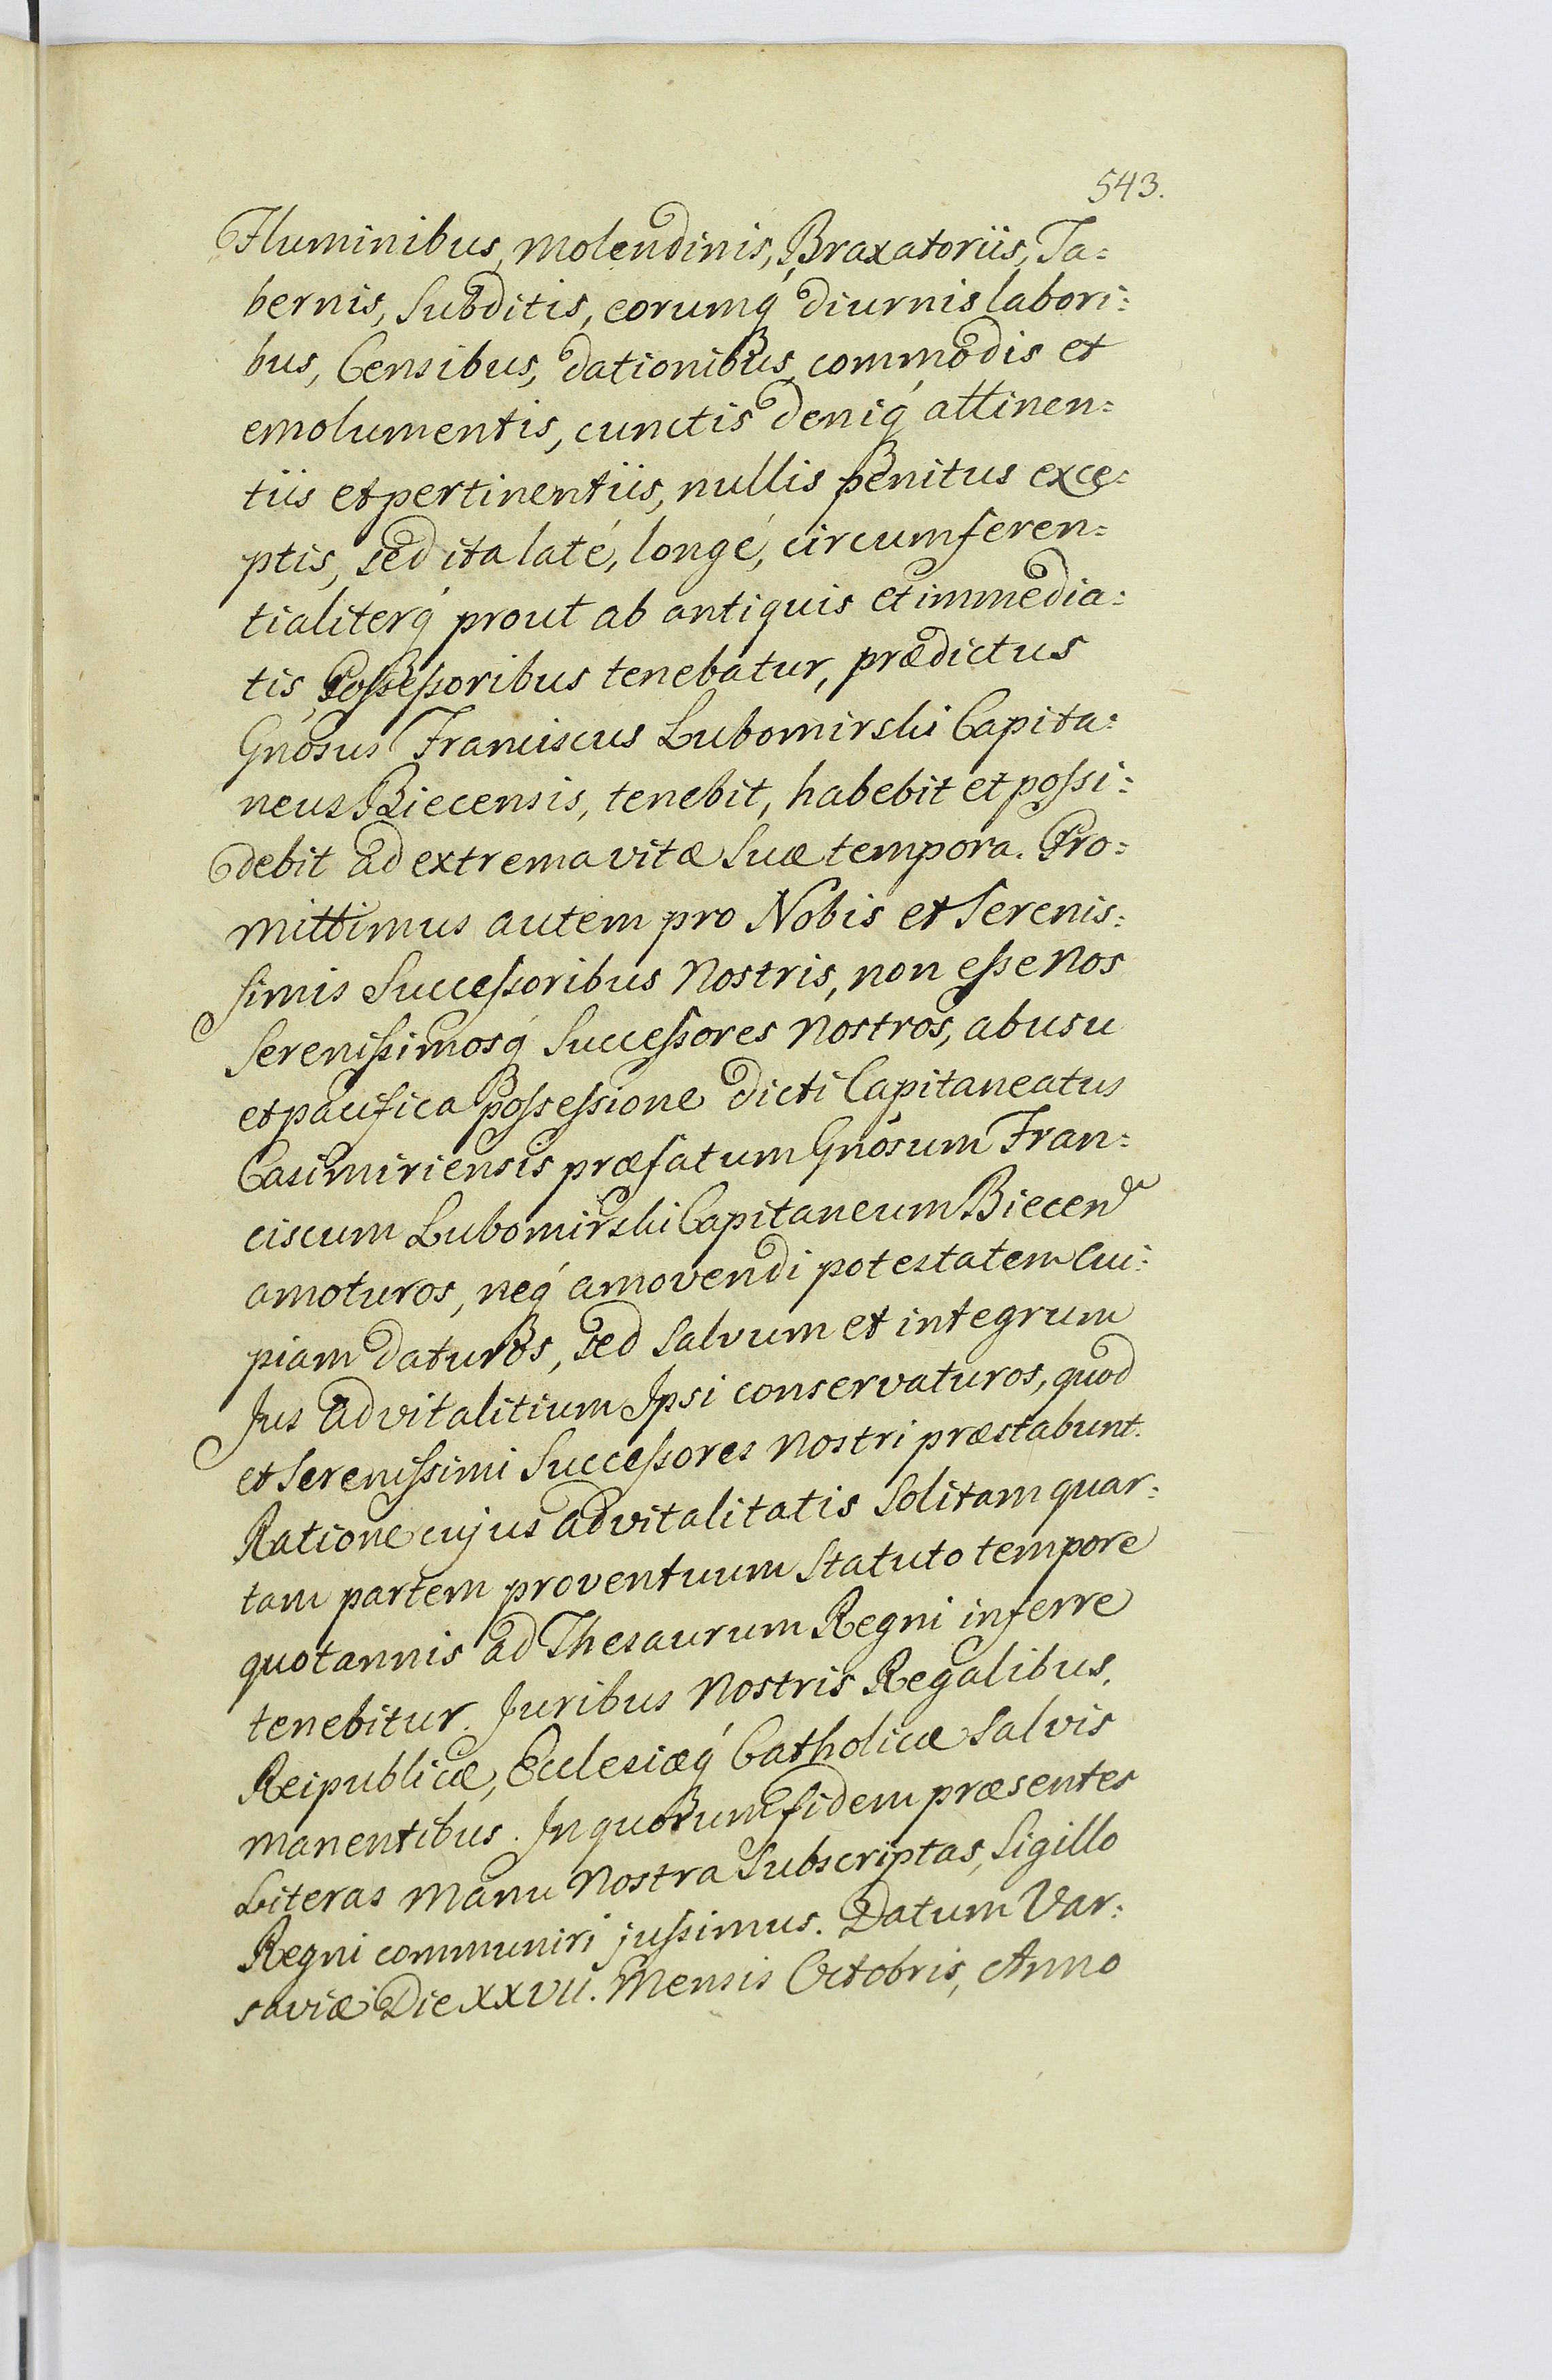 543.
Fluminibus, Molendinis, Braxatoriis, Ta:
bernis, Subditis, eorumq́ diurnis labori:
bus, Censibus, dationibus, commodis et
emolumentis, cunctis deniq́ attinen:
tiis et pertinentiis, nullis penitus exce:
ptis, sed ita laté, longé, circumferen:
tialiterq́ prout ab antiquis et immedia:
tis Poſseſsoribus tenebatur, prædictus
Gnósus Franciscus Lubomirski Capita:
neus Biecensis, tenebit, habebit et poſsi:
debit ad extrema vitæ Suæ tempora. Pro:
mittimus autem pro Nobis et Serenis:
simis Succeſsoribus Nostris, non eſse Nos
Sereniſsimosq́ Succeſsores Nostros, ab usu
et pacifica poſseſsione dicti Capitaneatus
Casimiriensis præfatum Gnósum Fran:
ciscum Lubomirski Capitaneum Biecen
amoturos, neq́ amovendi potestatem Cui:
piam daturos, sed Salvum et integrum
Jus advitalitium Ipsi conservaturos, quod
et Sereniſsimi Succeſsores Nostri præstabunt.
Ratione cujus advitalitatis Solitam quar:
tam partem proventuum Statuto tempore
quotannis ad Thesaurum Regni inferre
tenebitur. Juribus Nostris Regalibus,
Reipublicæ, Ecclesiæq́ Catholicæ Salvis
manentibus. In quorum fidem præsentes
Literas Manu Nostra Subscriptas, Sigillo
Regni communiri juſsimus. Datum Var:
saviæ Die XXVII. Mensis Octobris, Anno